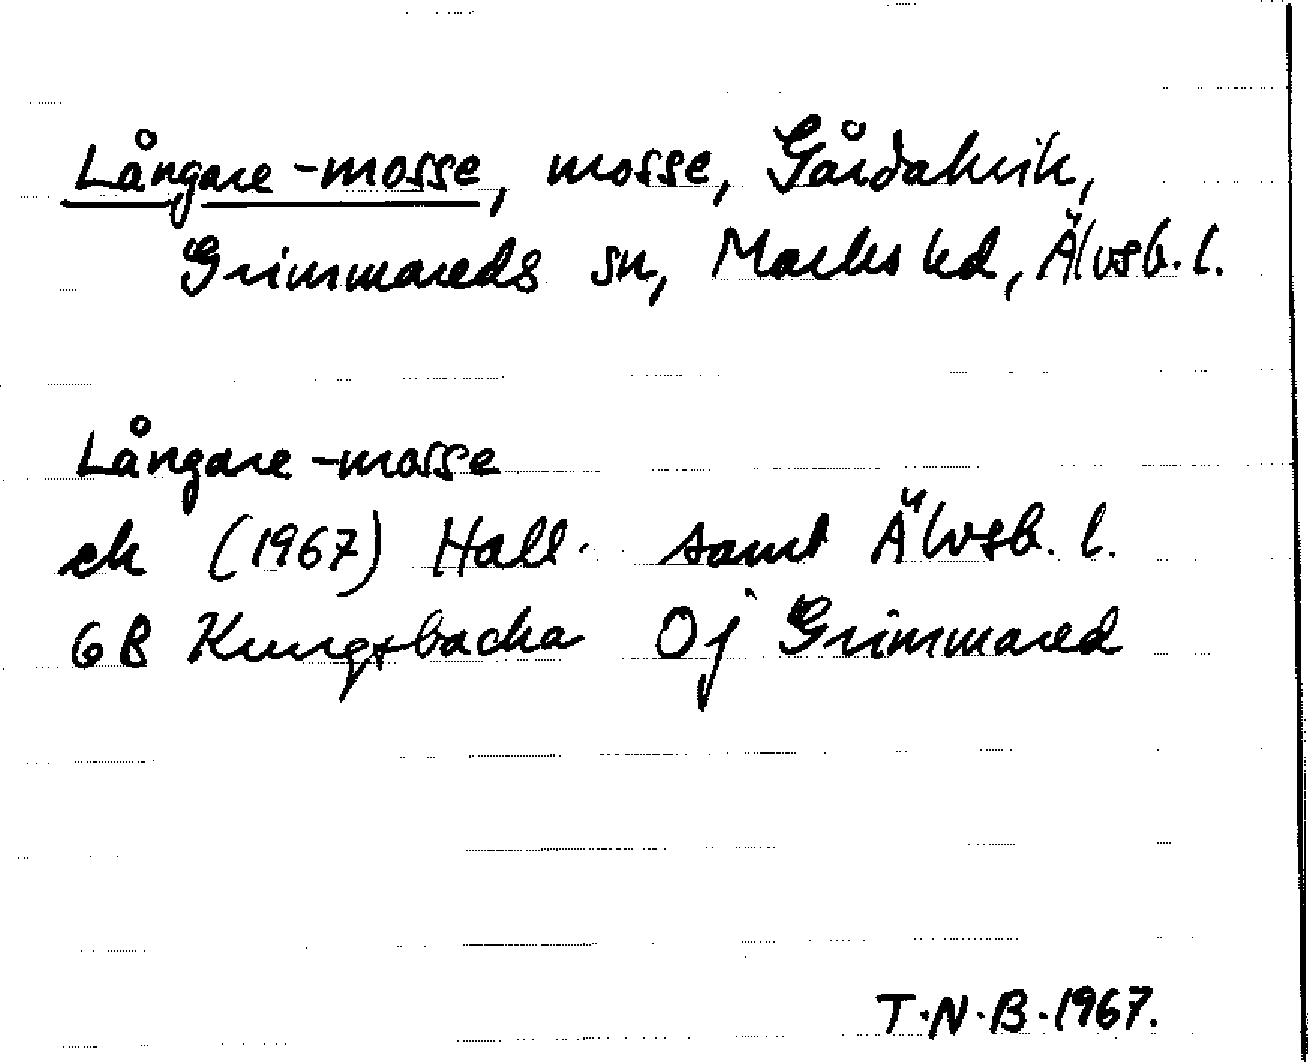 Långare-mosse, mosse, Gårdakvik,
Grimmareds sn, Marks hd, Älvsb. l.
Långare-mosse
ek (1967) Hall. samt Älvsb. l.
6B Kungsbacka Oj Grimmared
T.N.B.1967.